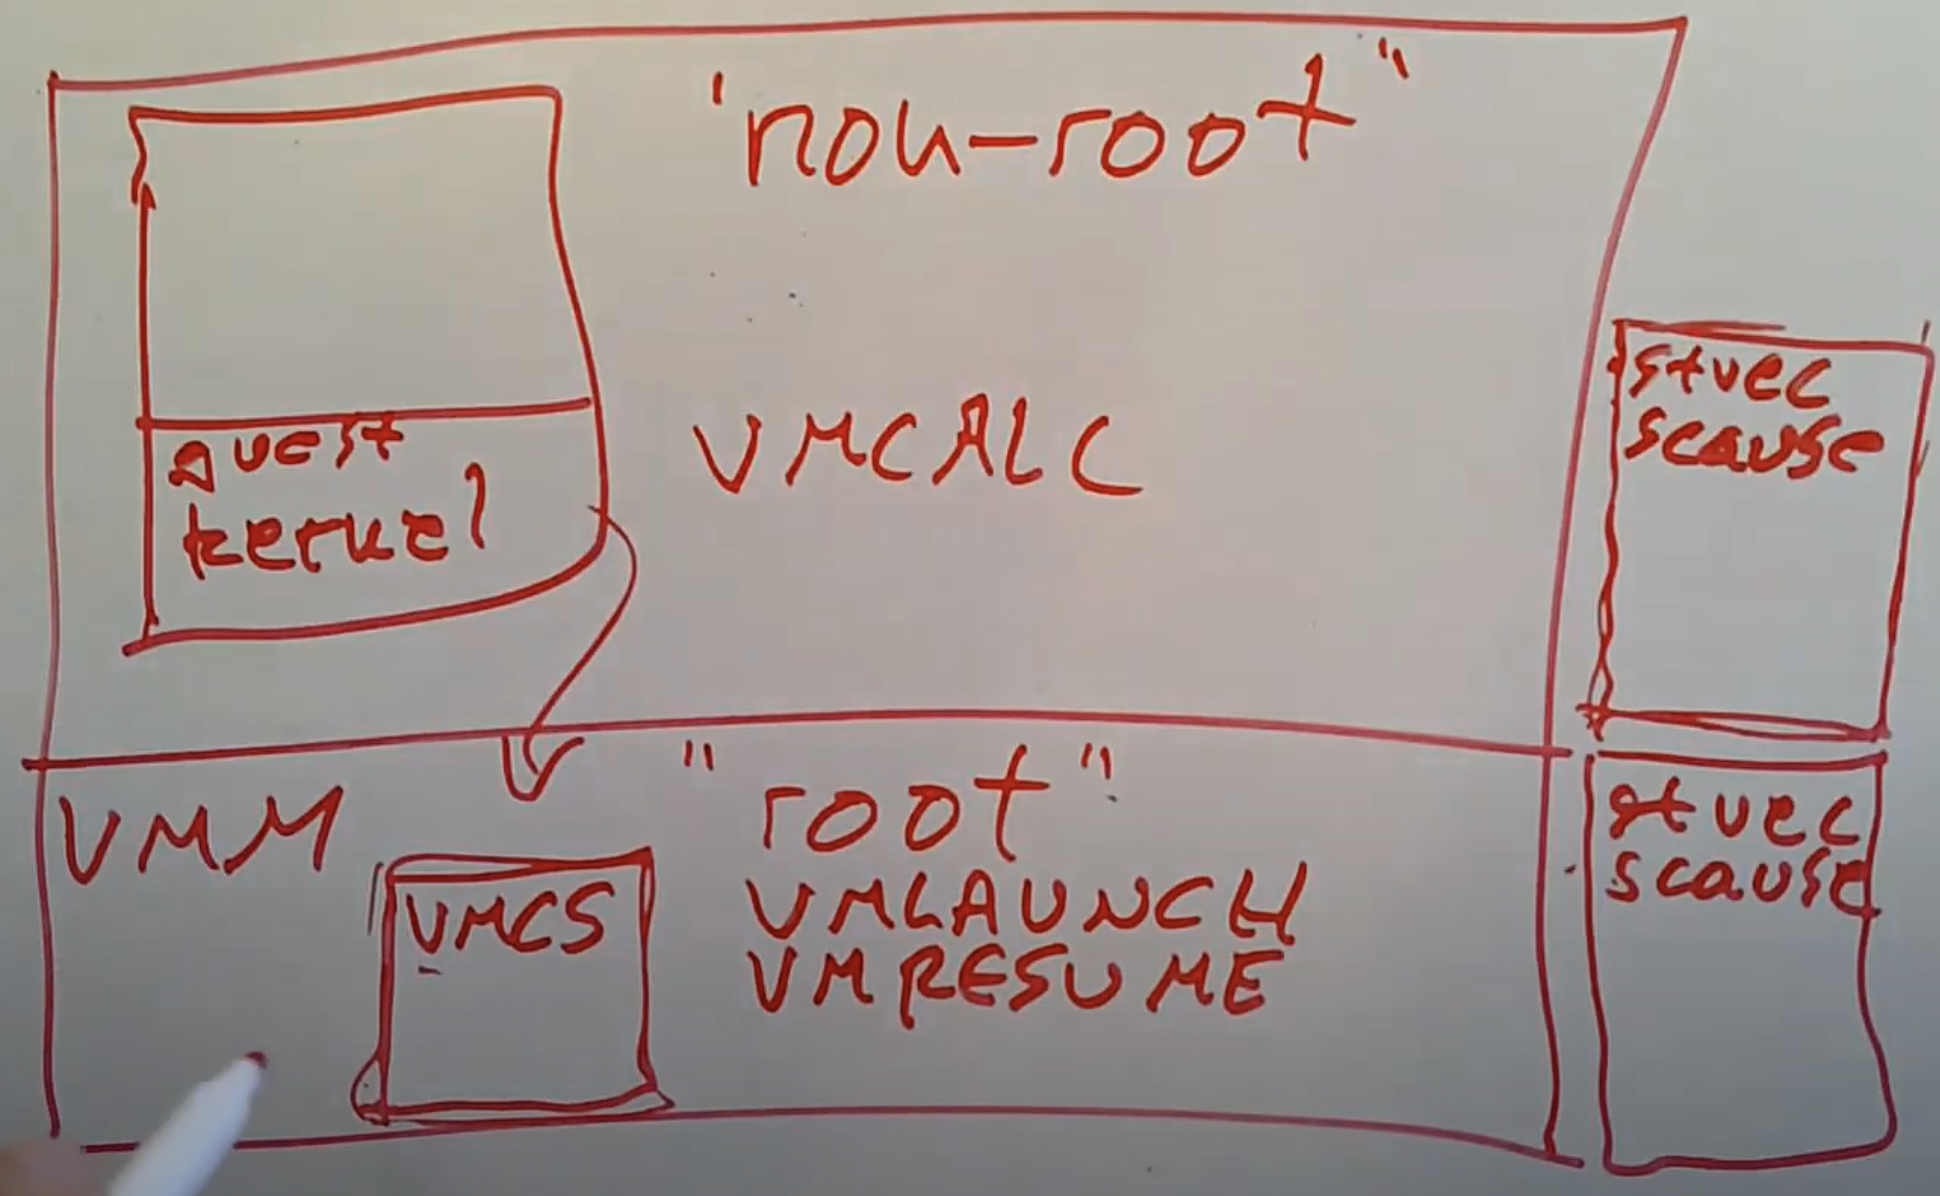 "non-root"
guest
kernel
VMCALL
stvec
scause
VMM
VMCS
"root"
VMLAUNCH
VMRESUME
stvec
scause